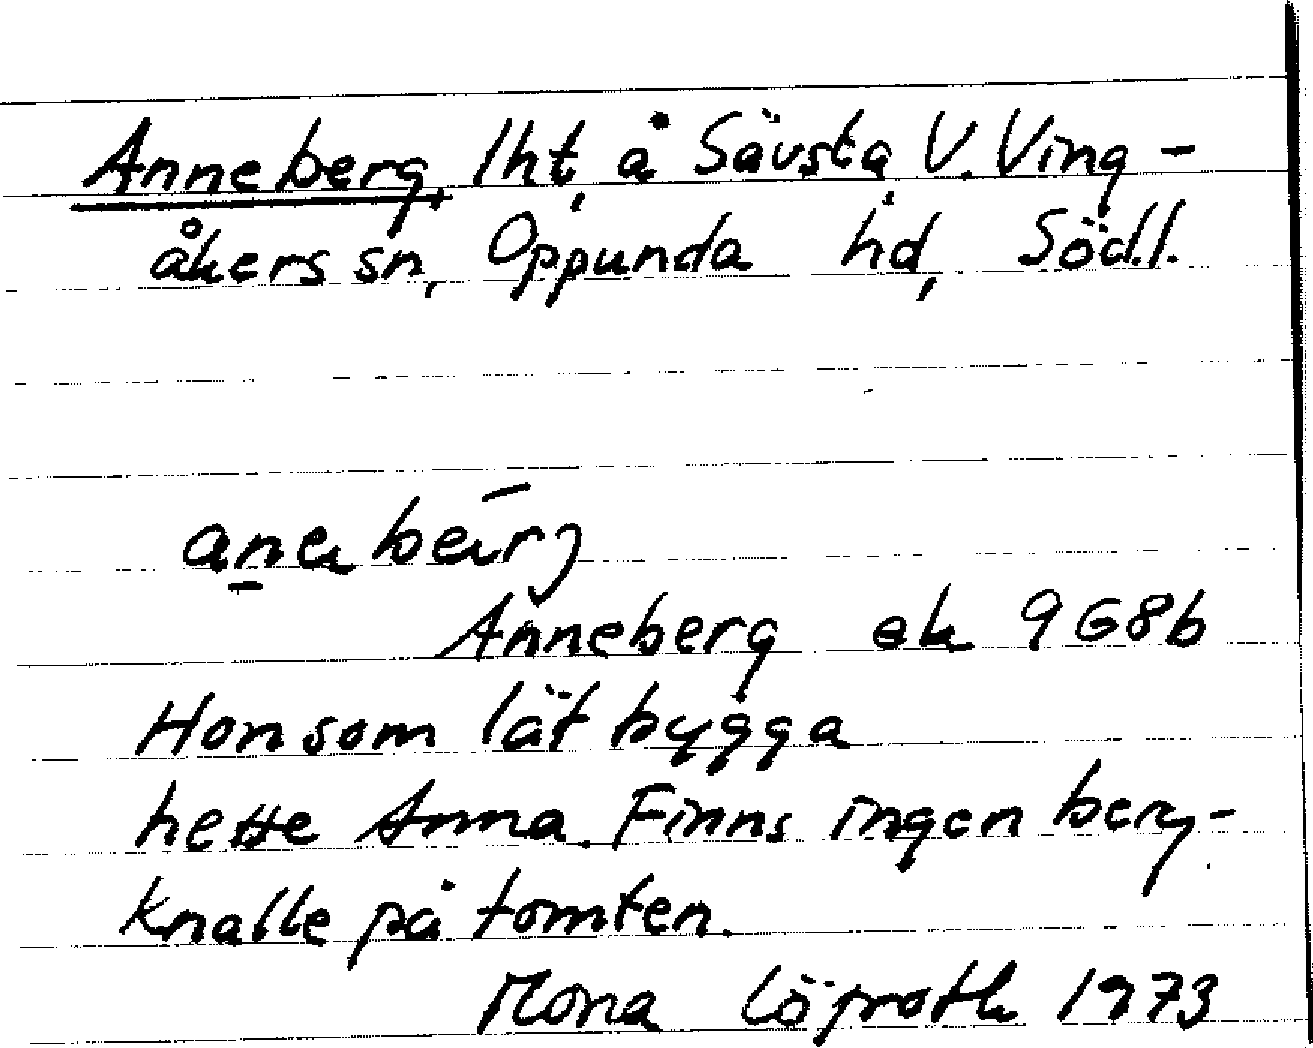 Anneberg, lht, å Sävsta, V. Ving-
åkers sn, Oppunda hd, Södl.
Anneberg ek 9G8b
Hon som lät bygga
hette Anna. Finns ingen berg-
knalle på tomten.
Mona Löfroth 1973